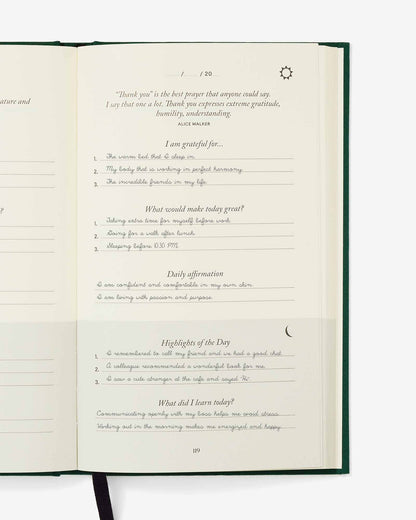 / / 20
ature and
"Thank you" is the best prayer that anyone could say.
I say that one a lot. Thank you expresses extreme gratitude,
humility, understanding.
ALICE WALKER
I am grateful for...
1. The warm bed that I sleep in.
2. My body that is working in perfect harmony.
3. The incredible friends in my life.
?
What would make today great?
1. Taking extra time for myself before work.
2. Going for a walk after lunch.
3. Sleeping before 10:30 PM.
Daily affirmation
I am confident and comfortable in my own skin.
I am living with passion and purpose.
Highlights of the Day
1. I remembered to call my friend and we had a good chat.
2. A colleague recommended a wonderful book for me.
3. I saw a cute stranger at the cafe and sayed "Hi".
What did I learn today?
Communicating openly with my boss helps me avoid stress.
Working out in the morning makes me energized and happy.
119